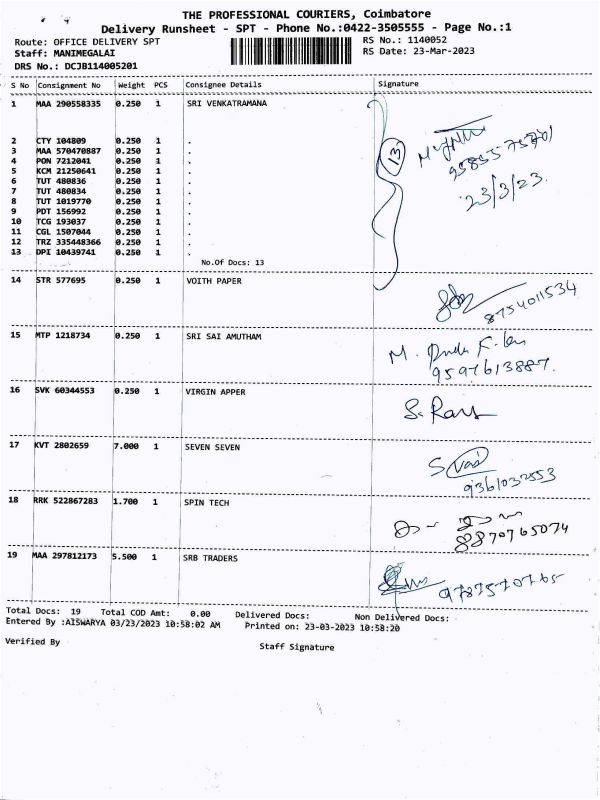 THE PROFESSIONAL COURIERS, Coimbatore
Delivery Runsheet - SPT - Phone No.:0422-3505555 - Page No.:1
Route: OFFICE DELIVERY SPT RS No.: 1140052
Staff: MANIMEGALAI RS Date: 23-Mar-2023
DRS No.: DCJB114005201
S No Consignment No Weight PCS Consignee Details Signature
1 MAA 290558335 0.250 1 SRI VENKATRAMANA
2 CTY 104809 0.250 1 .
3 MAA 570470887 0.250 1 .
4 PON 7212041 0.250 1 .
5 KCM 21250641 0.250 1 .
6 TUT 480836 0.250 1 .
7 TUT 480834 0.250 1 .
8 TUT 1019770 0.250 1 .
9 PDT 156992 0.250 1 .
10 TCG 193037 0.250 1 .
11 CGL 1507044 0.250 1 .
12 TRZ 335448366 0.250 1 .
13 DPI 10439741 0.250 1 .
No.Of Docs: 13
13
23/3/23.
14 STR 577695 0.250 1 VOITH PAPER
8754011534
15 MTP 1218734 0.250 1 SRI SAI AMUTHAM
9597613887.
16 SVK 60344553 0.250 1 VIRGIN APPER
17 KVT 2802659 7.000 1 SEVEN SEVEN
9361032553
18 RRK 522867283 1.700 1 SPIN TECH
8870765074
19 MAA 297812173 5.500 1 SRB TRADERS
Total Docs: 19 Total COD Amt: 0.00 Delivered Docs: Non Delivered Docs:
Entered By :AISWARYA 03/23/2023 10:58:02 AM Printed on: 23-03-2023 10:58:20
Verified By Staff Signature